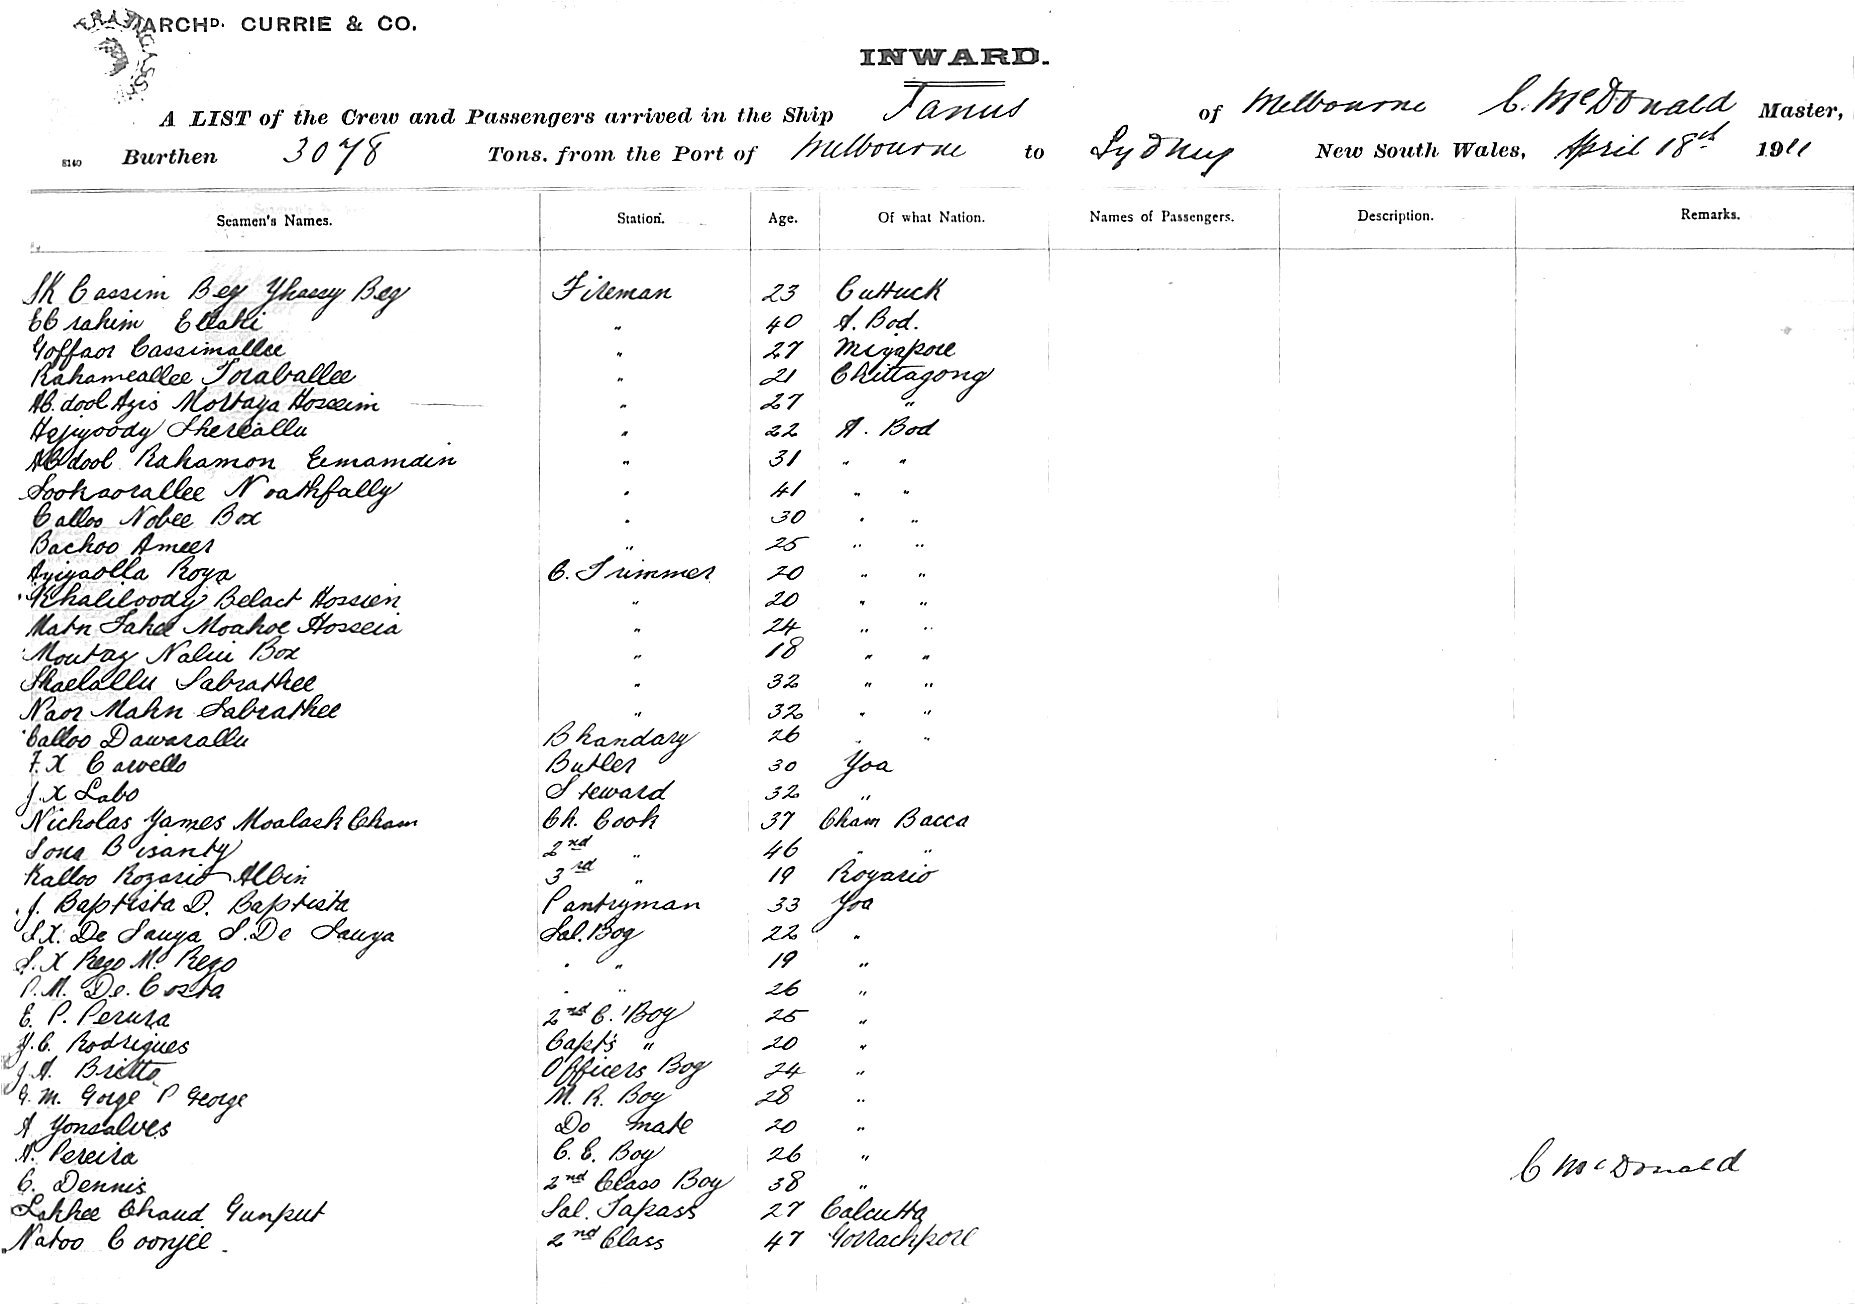 ARCHD. CURRIE & CO.
INWARD.
A LIST of the Crew and Passengers arrived in the Ship Janus of Melbourne C. McDonald Master,
8140 Burthen 3078 Tons, from the Port of Melbourne to Sydney New South Wales, April 18th 1911
Seamen's Names. Station. Age. Of what Nation. Names of Passengers. Description. Remarks.
SK Cassim Beg Yhassy Beg Fireman 23 Cuttuck
Ebrahim Ellahi " 40 A. Bod.
Goffaor Cassimallee " 27 Mizapore
Rahameallee Toraballee " 21 Chittagong
Ab.dool Azis Mortaza Hosseim " 27 "
Hajiyoody Shereallu " 22 A. Bod
Abdool Rahamon Eemamdin " 31 " "
Sookaorallee Noathfally " 41 " "
Calloo Nobee Box " 30 " "
Bachoo Ameer " 25 " "
Aziyaolla Roza C. Trimmer 20 " "
Khaliloody Belact Hossien " 20 " "
Matn Sahee Moahoe Hosseia " 24 " "
Moutaz Nalui Box " 18 " "
Shaelallu Sabrathee " 32 " "
Naor Mahn Sabrathee " 32 " "
Calloo Dawarallu Bhandary 26 " "
F. X Carvello Butler 30 Goa
J. X Labo Steward 32 "
Nicholas James Moalash Cham Ch. Cook 37 Cham Bacca
Sona Bisanty 2nd " 46 " "
Kalloo Rozario Albin 3rd " 19 Rozario
J. Baptista D. Baptista Pantryman 33 Goa
S.X. De Sauza S. De Sauza Sal. Boy 22 "
S. X Rego M. Rego " " 19 "
P. M. De. Costa " " 26 "
E. P. Perura 2nd C. Boy 25 "
J. C. Rodrigues Capt's " 20 "
J A. Britto Officers Boy 24 "
G. M. Gorge P George M. R. Boy 28 "
A Gonsalves Do mate 20 "
A. Pereira C. E. Boy 26 "
C. Dennis 2nd Class Boy 38 "
C McDonald
Lakhee Chaud Gunput Sal. Topass 27 Calcutta
Natoo Coonjee. 2nd Class 47 Gorrachpore